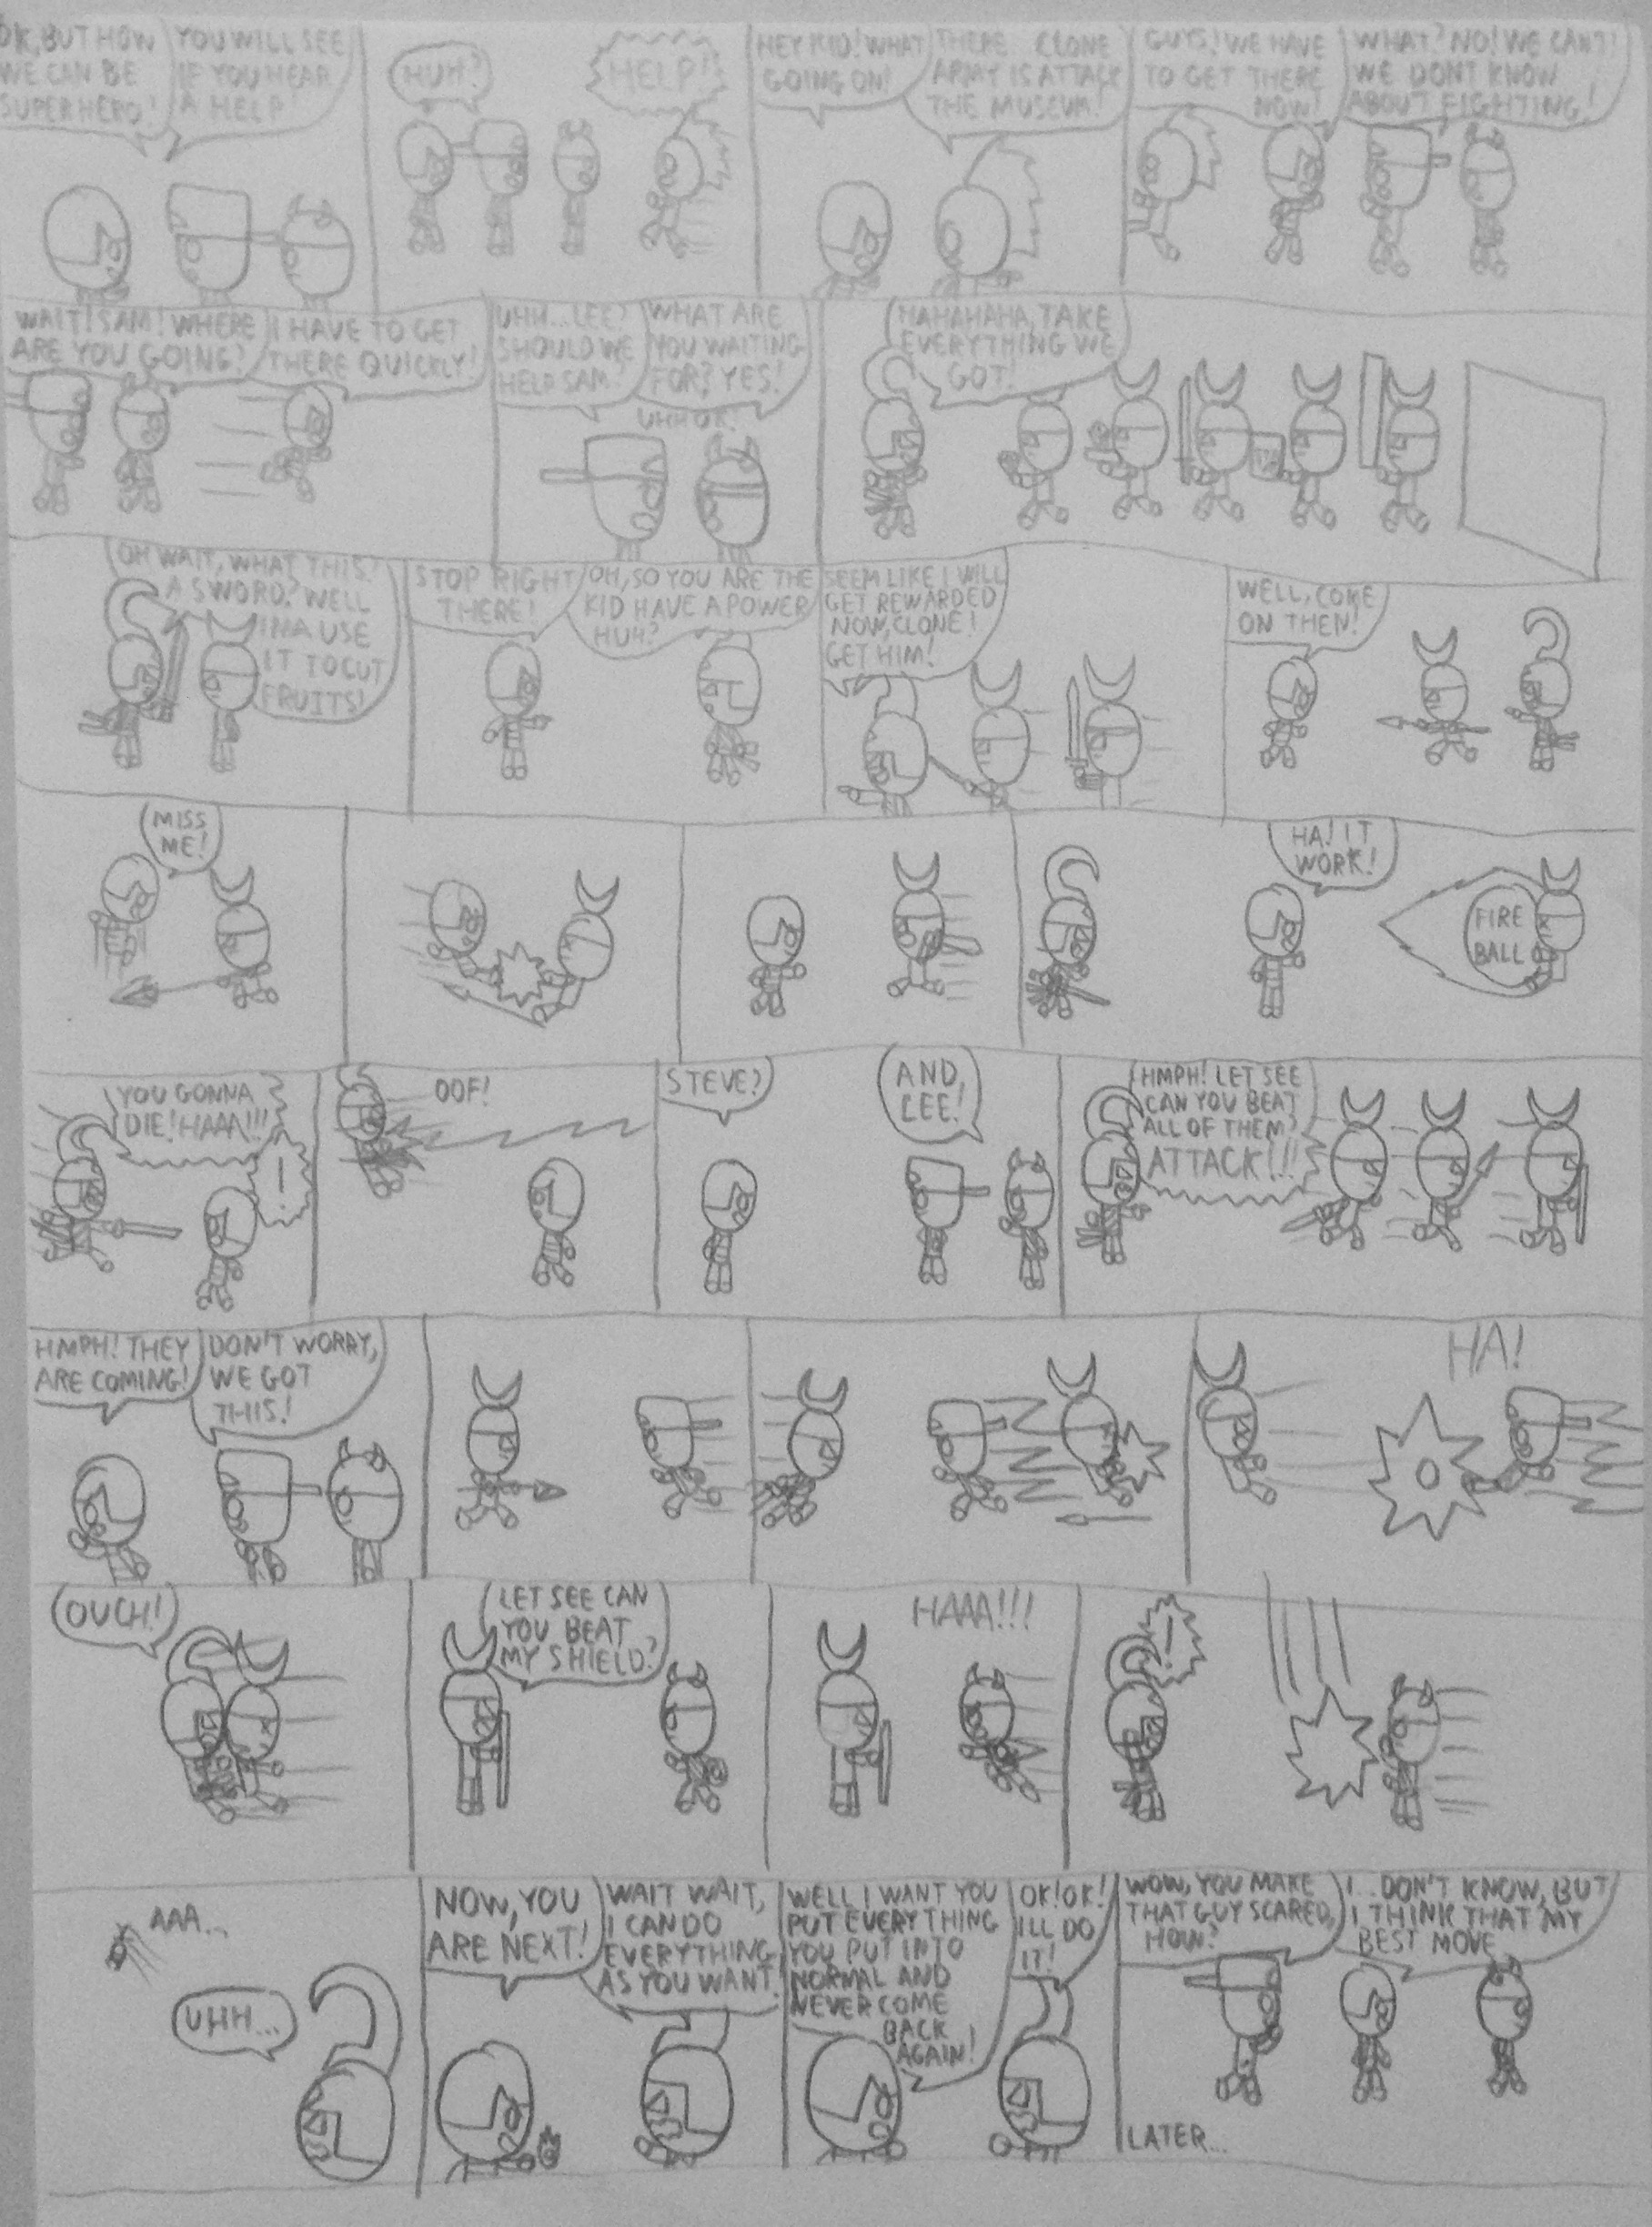 OK, BUT HOW
WE CAN BE
SUPERHERO!
YOU WILL SEE
IF YOU HEAR
A HELP!
HUH?
HELP!
HEY KID! WHAT
GOING ON!
THERE CLONE
ARMY IS ATTACK
THE MUSEUM!
GUYS! WE HAVE
TO GET THERE
NOW!
WHAT? NO! WE CAN'T!
WE DONT KNOW
ABOUT FIGHTING!
WAIT! SAM! WHERE
ARE YOU GOING?
I HAVE TO GET
THERE QUICKLY!
UHH... LEE?
SHOULD WE
HELP SAM?
WHAT ARE
YOU WAITING
FOR? YES!
UHH OK!
HAHAHAHA, TAKE
EVERYTHING WE
GOT!
OH WAIT, WHAT THIS?
A SWORD? WELL
IMA USE
IT TO CUT
FRUITS!
STOP RIGHT
THERE!
OH, SO YOU ARE THE
KID HAVE A POWER
HUH?
SEEM LIKE I WILL
GET REWARDED
NOW, CLONE!
GET HIM!
WELL, COME
ON THEN!
MISS
ME!
HA! IT
WORK!
FIRE
BALL
YOU GONNA
DIE! HAAA!!!
!
OOF!
STEVE?
AND,
LEE!
HMPH! LET SEE
CAN YOU BEAT
ALL OF THEM?
ATTACK!!!
HMPH! THEY
ARE COMING!
DON'T WORRY,
WE GOT
THIS!
HA!
OUCH!
LET SEE CAN
YOU BEAT
MY SHIELD?
HAAA!!!
!
AAA...
UHH...
NOW, YOU
ARE NEXT!
WAIT WAIT,
I CAN DO
EVERYTHING
AS YOU WANT.
WELL I WANT YOU
PUT EVERYTHING
YOU PUT INTO
NORMAL AND
NEVER COME
BACK
AGAIN!
OK! OK!
ILL DO
IT!
WOW, YOU MAKE
THAT GUY SCARED,
HOW?
I.. DON'T KNOW, BUT
I THINK THAT MY
BEST MOVE
LATER...